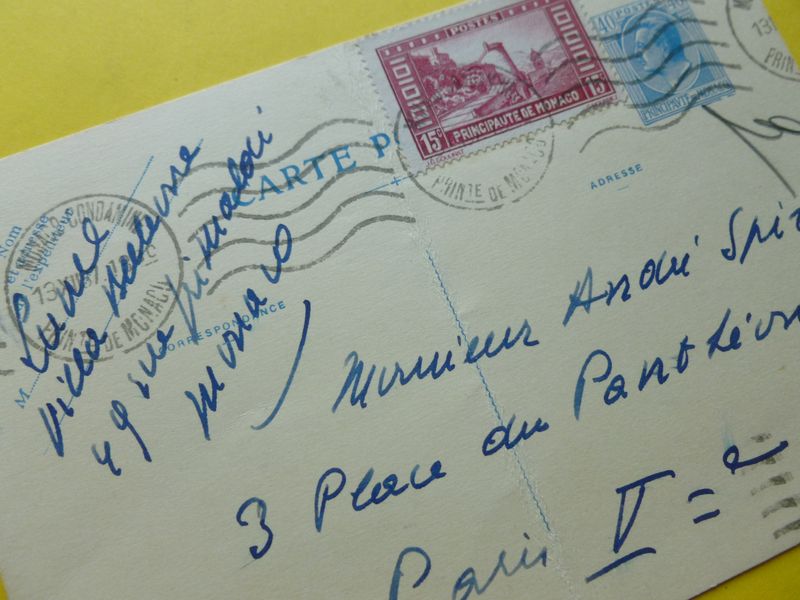 POSTES
15c PRINCIPAUTE DE MONACO 15
40
PRINCIPAUTÉ DE MONACO
CARTE P
PRINTE DE MONACO
ADRESSE
Nom
et adresse
de l'expéditeur
MONACO-CONDAMINE
PRINTE DE MONACO
M
CORRESPONDANCE
Villa
49 rue
Monaco
Monsieur André Spir
3 Place du Panthéon
Paris V = e